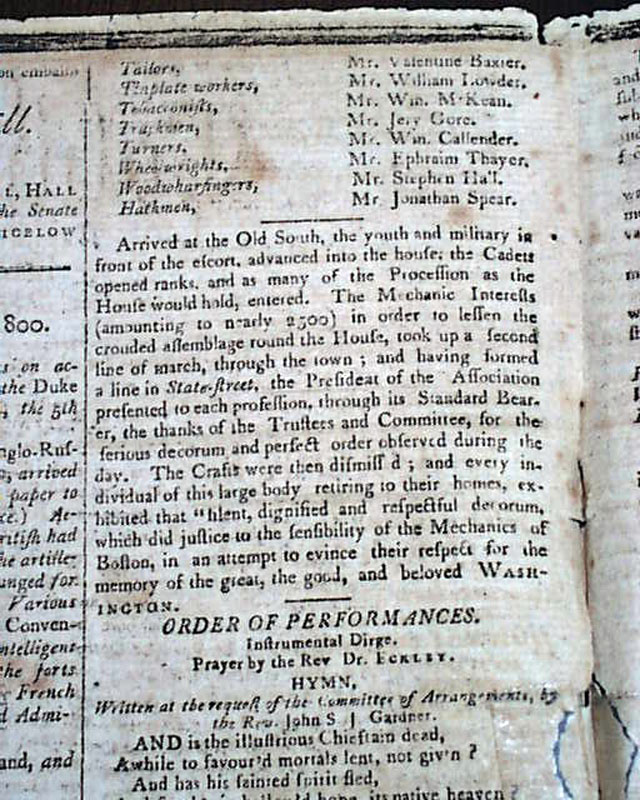 on embalm
ill.
L, HALL
the Senate
IGELOW
800.
s on ac-
the Duke
, the 5th
nglo-Ruſ-
o, arrived
paper to
ce.) Ac-
ritiſh had
he artille-
anged for.
Various
Conven-
intelligent
the forts
French
d Admi-
and, and
Tailors, Mr. Valentine Baxter.
Tinplate workers, Mr. William Lowder.
Tobacconiſts, Mr. Wm. McKean.
Truckmen, Mr. Jery Gore.
Turners, Mr. Wm. Callender.
Wheelwrights, Mr. Ephraim Thayer.
Woodwharfingers, Mr. Stephen Hall.
Hackmen, Mr. Jonathan Spear.
Arrived at the Old South, the youth and military in
front of the eſcort, advanced into the houſe; the Cadets
opened ranks, and as many of the Proceſſion as the
Houſe would hold, entered. The Mechanic Intereſts
(amounting to nearly 2500) in order to leſſen the
crouded aſſemblage round the Houſe, took up a ſecond
line of march, through the town; and having formed
a line in State-ſtreet, the Preſident of the Aſſociation
preſented to each profeſſion, through its Standard Bear-
er, the thanks of the Truſtees and Committee, for the
ſerious decorum and perfect order obſerved during the
day. The Crafts were then diſmiſſ'd; and every in-
dividual of this large body retiring to their homes, ex-
hibited that "ſilent, dignified and reſpectful decorum,
which did juſtice to the ſenſibility of the Mechanics of
Boſton, in an attempt to evince their reſpect for the
memory of the great, the good, and beloved WASH-
INGTON.
ORDER OF PERFORMANCES.
Inſtrumental Dirge.
Prayer by the Rev Dr. ECKLEY.
HYMN,
Written at the requeſt of the Committee of Arrangements, by
the Rev. John S J Gardner.
AND is the illuſtrious Chieftain dead,
Awhile to favour'd mortals lent, not giv'n?
And has his ſainted ſpirit fled,
its native heaven?